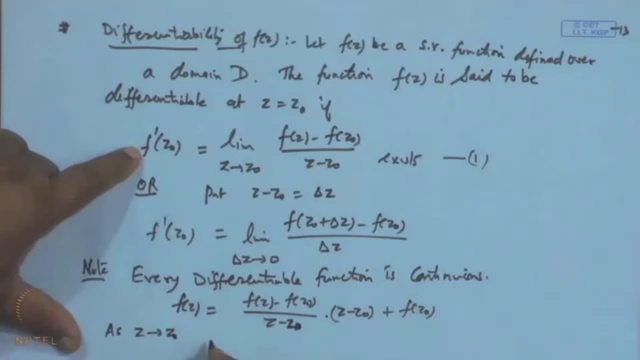 * Differentiability of f(z) :- Let f(z) be a s.v. function defined over
a domain D. The function f(z) is said to be
differentiable at z = z₀ if
f'(z₀) = lim_{z→z₀} (f(z) - f(z₀))/(z - z₀) exists —(1)
OR put z - z₀ = Δz
f'(z₀) = lim_{Δz→0} (f(z₀+Δz) - f(z₀))/Δz
Note Every Differentiable function is Continuous.
f(z) = (f(z) - f(z₀))/(z - z₀) · (z - z₀) + f(z₀)
As z → z₀
NPTEL